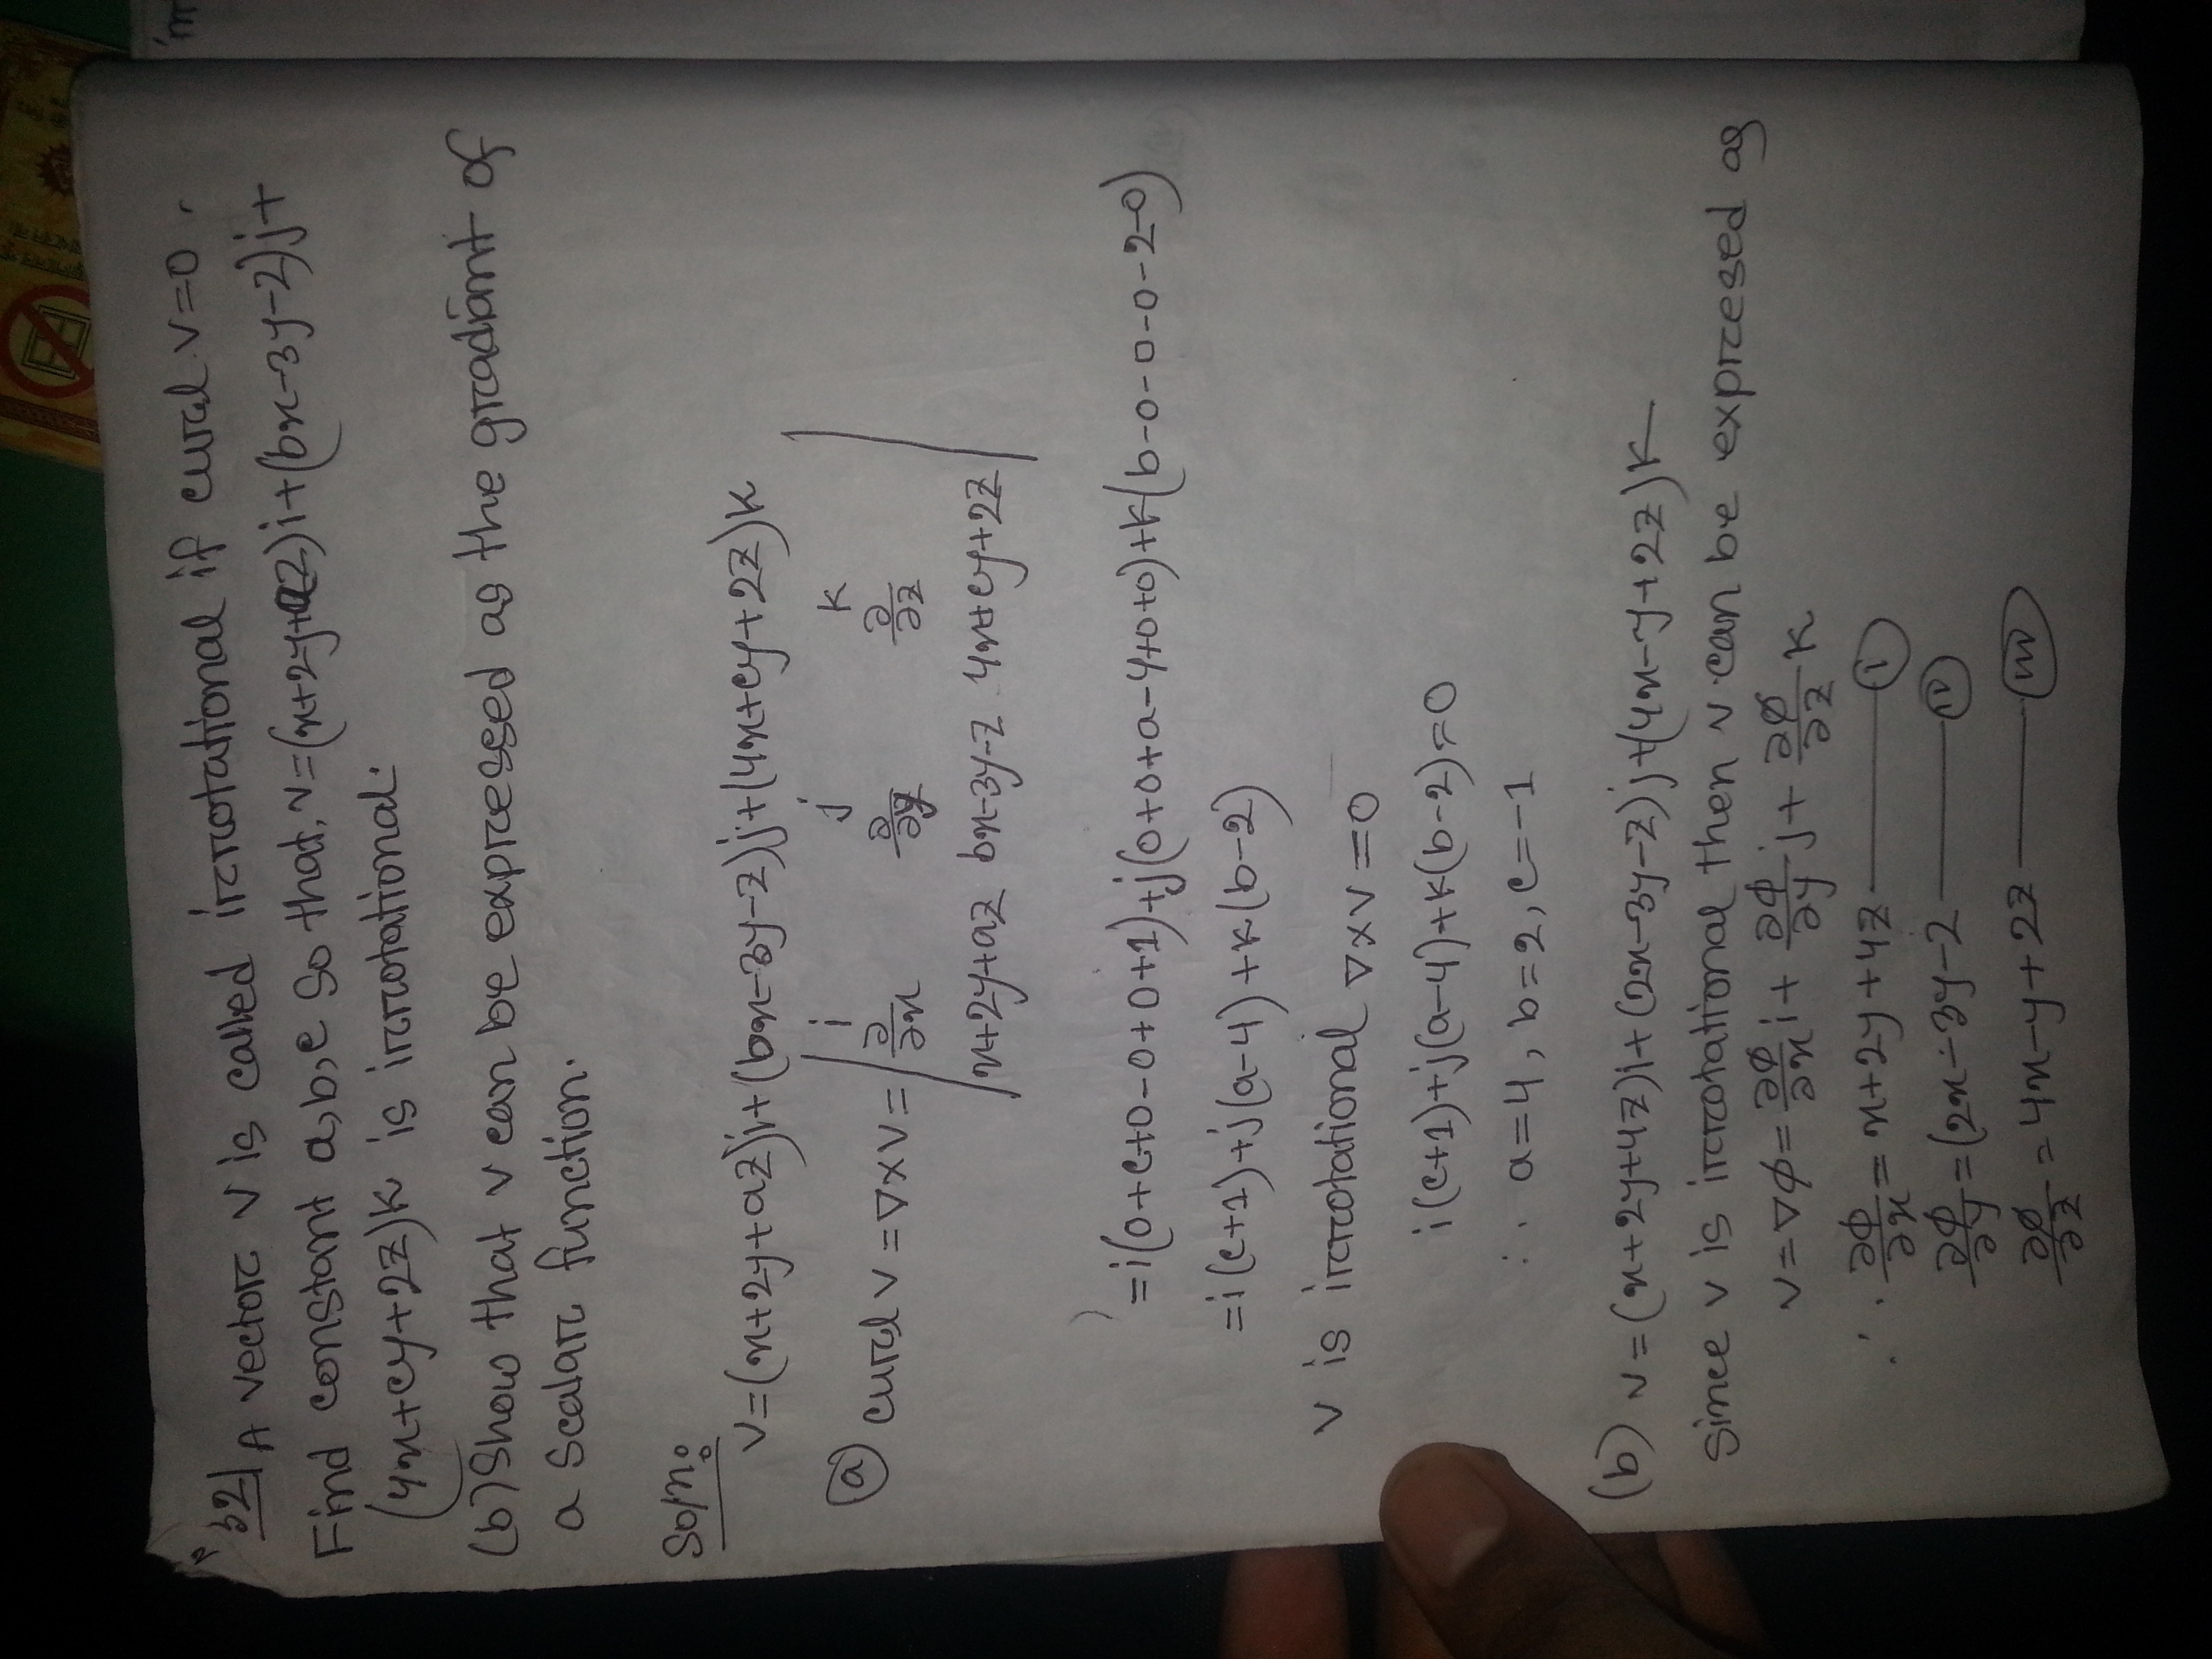 32| A vectorc v is called ircrcotational if curcl v=0.
Find constant a,b,c so that, v=(x+2y+az)i+(bx-3y-z)j+
(4x+cy+2z)k is ircrcotational.
(b) Show that v can be exprcessed as the grcadiant of
a scalarc function.
Soln:
v=(x+2y+az)i+(bx-3y-z)j+(4x+cy+2z)k
(a) curcl v = ∇×v = | i j k
∂/∂x ∂/∂y ∂/∂z
x+2y+az bx-3y-z 4x+cy+2z |
=i(0+c+0-0+0+1)+j(0+0+a-4+0+0)+k(b-0-0-0-2-0)
=i(c+1)+j(a-4)+k(b-2)
v is ircrcotational ∇×v=0
i(c+1)+j(a-4)+k(b-2)=0
∴ a=4, b=2, c=-1
(b) v=(x+2y+4z)i+(2x-3y-z)j+(4x-y+2z)k
since v is ircrcotational then v can be exprcesed as
v=∇φ=∂φ/∂x i+ ∂φ/∂y j+ ∂φ/∂z k
∴ ∂φ/∂x = x+2y+4z — (i)
∂φ/∂y =(2x-3y-z — (ii)
∂φ/∂z = 4x-y+2z — (iii)